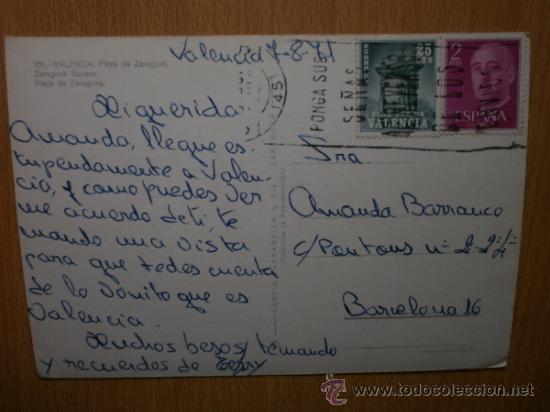 101.-VALENCIA. Plaza de Zaragoza.
Zaragoza Square.
Place de Zaragoza.
Valencia 7-8-71
PONGA SUS
SEÑAS
25
CTS
VALENCIA
2
PTAS
ESPAÑA
Mi querida
Amanda, llegue es-
tupendamente a Valen-
cia, y como puedes ver
me acuerdo de ti, te
mando una vista
para que tedes cuenta
de lo bonito que es
Valencia.
Muchos besos
y recuerdos de
Sra
Amanda Barranco
c/ Pontons nº 2-2º
Barcelona 16
todocoleccion.net